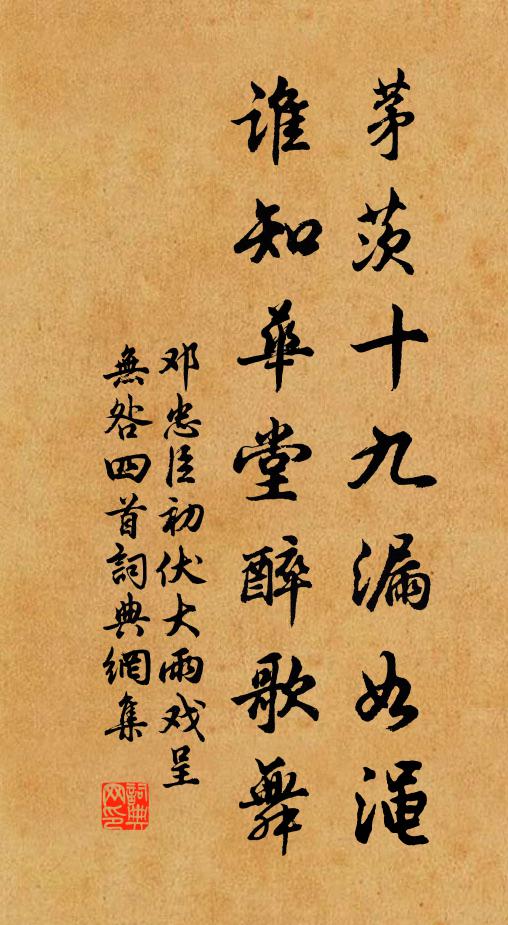 茅茨十九漏如渑
谁知華堂醉歌舞
邓忠臣初伏大雨戏呈
無咎四首詞典網集
詞典网印